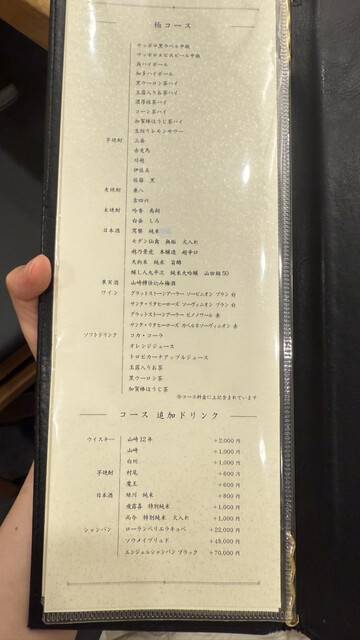 極コース
サッポロ黒ラベル中瓶
サッポロヱビスビール中瓶
角ハイボール
知多ハイボール
黒ウーロン茶ハイ
玉露入りお茶ハイ
濃厚緑茶ハイ
コーン茶ハイ
加賀棒ほうじ茶ハイ
生搾りレモンサワー
芋焼酎 三岳
赤兎馬
伊佐美
佐藤 黒
麦焼酎 兼八
吉四六
米焼酎 吟香 鳥飼
白岳 しろ
日本酒 純米
モダン仙禽 無垢 火入れ
越乃景虎 本醸造 超辛口
天狗舞 純米 旨醇
醸し人九平次 純米大吟醸 山田錦50
果実酒 山崎樽仕込み梅酒
ワイン グラットストーンアーラー ソービニオン ブラン 白
サンタ・リタヒーローズ ソーヴィニオン ブラン 白
グラットストーンアーラー ピノノワール 赤
サンタ・リタヒーローズ カベルネソーヴィニオン 赤
ソフトドリンク コカ・コーラ
オレンジジュース
トロピカーナアップルジュース
玉露入りお茶
黒ウーロン茶
加賀棒ほうじ茶
※コース料金に上記を含まれています
コース 追加ドリンク
ウイスキー 山崎12年 +2,000円
山崎 +1,000円
白州 +1,000円
芋焼酎 村尾 +600円
魔王 +600円
日本酒 緑川 純米 +800円
飛露喜 特別純米 +1,000円
而今 特別純米 火入れ +1,000円
シャンパン ローランペリエラキュベ +22,000円
ソウメイブリュド +45,000円
エンジェルシャンパン ブラック +70,000円